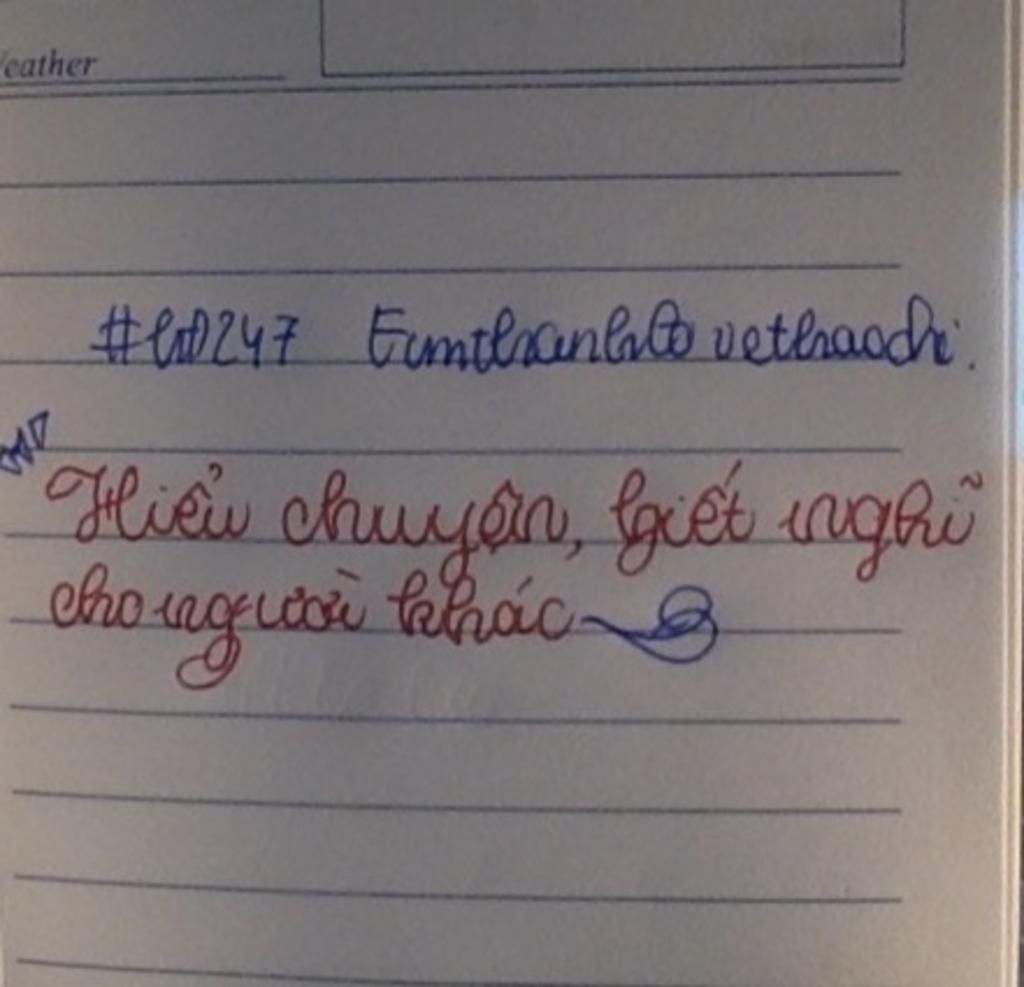 Weather
#hD247 Eumthanhto vethaochi.
Hiểu chuyện, biết nghĩ
cho người khác